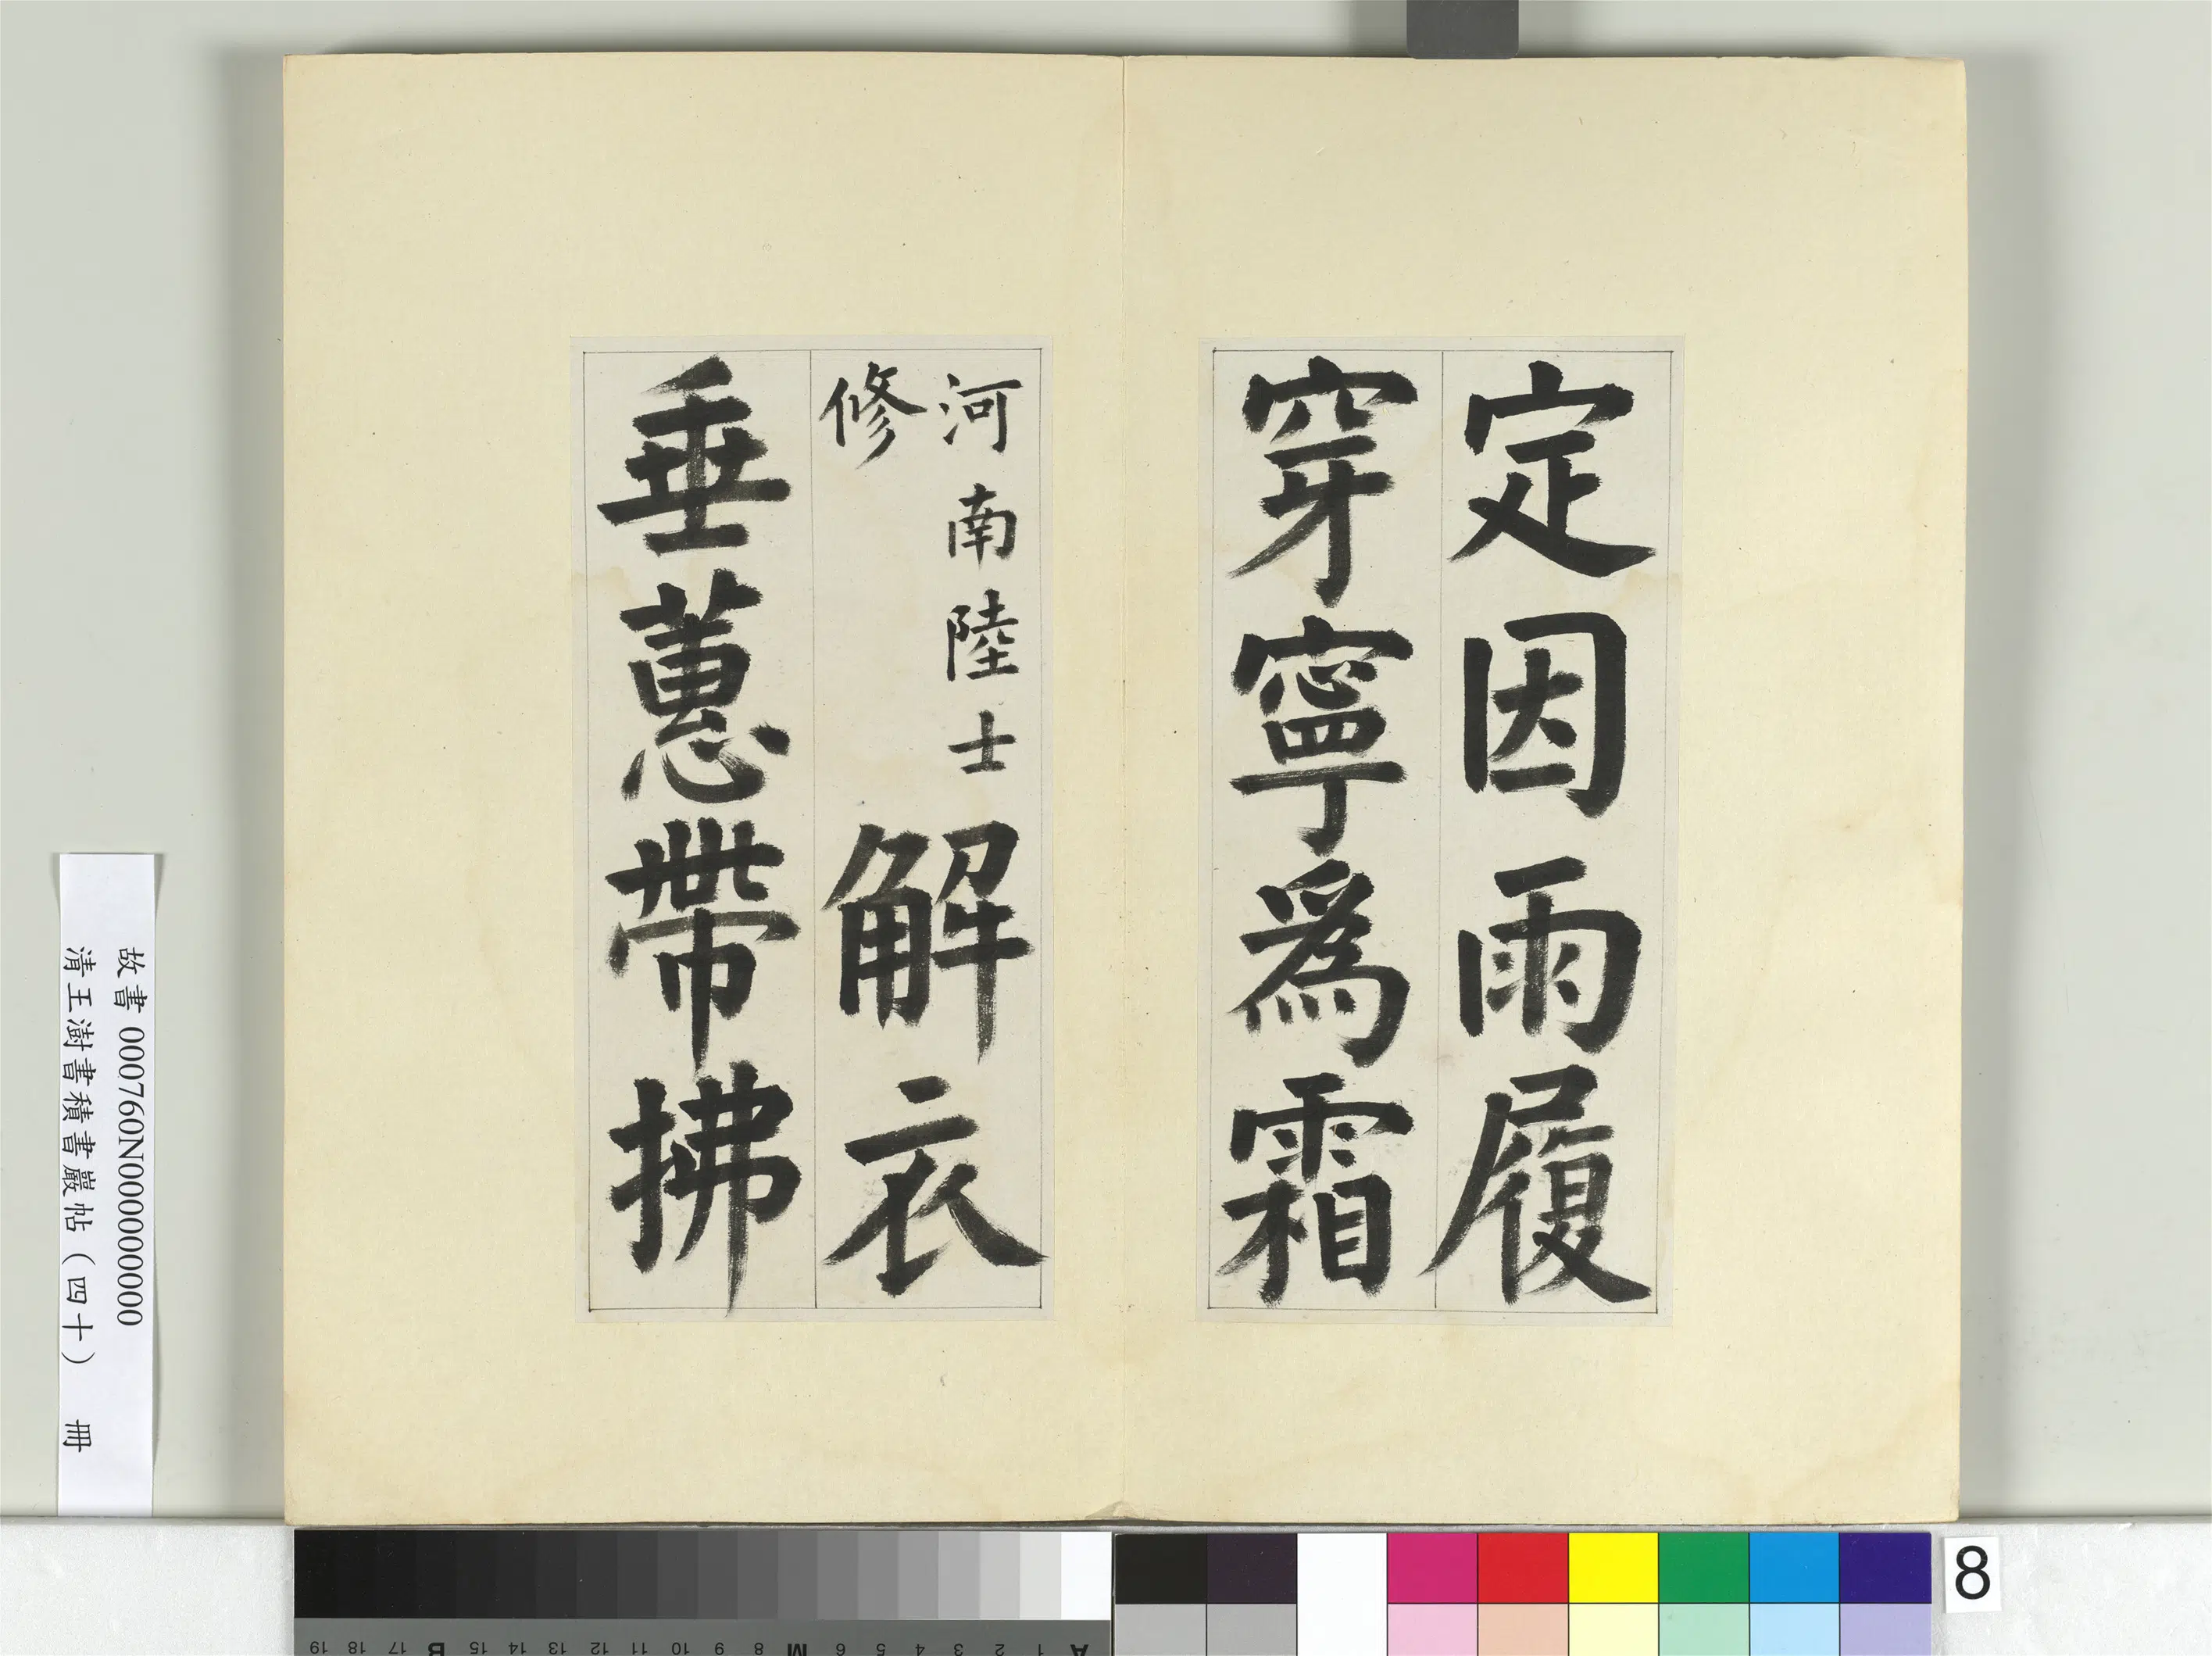 定因雨履
穿寧爲霜
河南陸士
修
解衣
垂蕙帶拂
故書 000760N000000000
清王澍書積書巖帖（四十） 冊
8
A 1 2 3 4 5 6 M 8 9 10 11 12 13 14 15 B 17 18 19